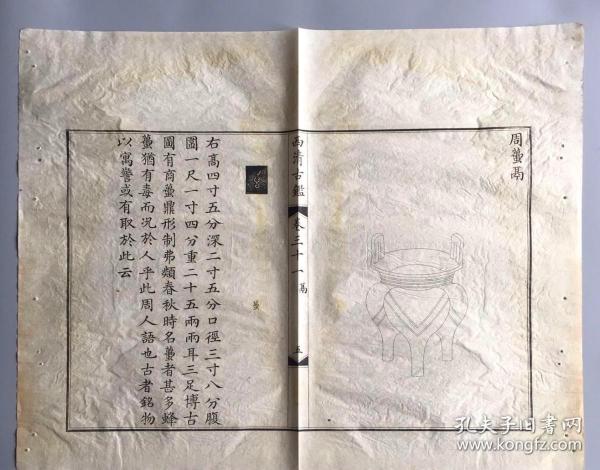 周蠆鬲
西清古鑑
卷三十一
鬲
五
蠆
右高四寸五分深二寸五分口徑三寸八分腹
圍一尺一寸四分重二十五兩兩耳三足博古
圖有商蠆鼎形制弗類春秋時名蠆者甚多蜂
蠆猶有毒而况於人乎此周人語也古者銘物
以寓警或有取於此云
孔夫子旧书网
www.kongfz.com